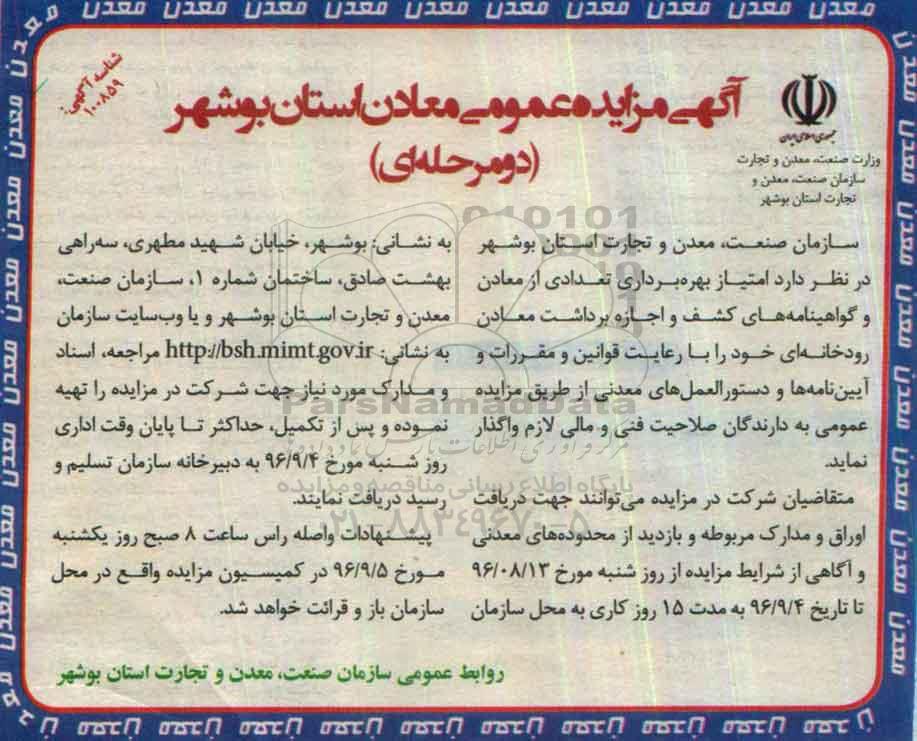 شناسه آگهی:
۱۰۰۸۵۹
جمهوری اسلامی ایران
وزارت صنعت، معدن و تجارت
سازمان صنعت، معدن و
تجارت استان بوشهر
آگهی مزایده عمومی معادن استان بوشهر
(دو مرحله‌ای)
سازمان صنعت، معدن و تجارت استان بوشهر
در نظر دارد امتیاز بهره‌برداری تعدادی از معادن
و گواهینامه‌های کشف و اجازه برداشت معادن
رودخانه‌ای خود را با رعایت قوانین و مقررات و
آیین‌نامه‌ها و دستورالعمل‌های معدنی از طریق مزایده
عمومی به دارندگان صلاحیت فنی و مالی لازم واگذار
نماید.
متقاضیان شرکت در مزایده می‌توانند جهت دریافت
اوراق و مدارک مربوطه و بازدید از محدوده‌های معدنی
و آگاهی از شرایط مزایده از روز شنبه مورخ ۹۶/۰۸/۱۳
تا تاریخ ۹۶/۹/۴ به مدت ۱۵ روز کاری به محل سازمان
به نشانی: بوشهر، خیابان شهید مطهری، سه‌راهی
بهشت صادق، ساختمان شماره ۱، سازمان صنعت،
معدن و تجارت استان بوشهر و یا وب‌سایت سازمان
به نشانی: http://bsh.mimt.gov.ir مراجعه، اسناد
و مدارک مورد نیاز جهت شرکت در مزایده را تهیه
نموده و پس از تکمیل، حداکثر تا پایان وقت اداری
روز شنبه مورخ ۹۶/۹/۴ به دبیرخانه سازمان تسلیم و
رسید دریافت نمایند.
پیشنهادات واصله راس ساعت ۸ صبح روز یکشنبه
مورخ ۹۶/۹/۵ در کمیسیون مزایده واقع در محل
سازمان باز و قرائت خواهد شد.
روابط عمومی سازمان صنعت، معدن و تجارت استان بوشهر
ParsNamadData
پایگاه اطلاع رسانی مناقصه و مزایده
۰۲۱-۸۸۳۴۹۶۷۰-۵